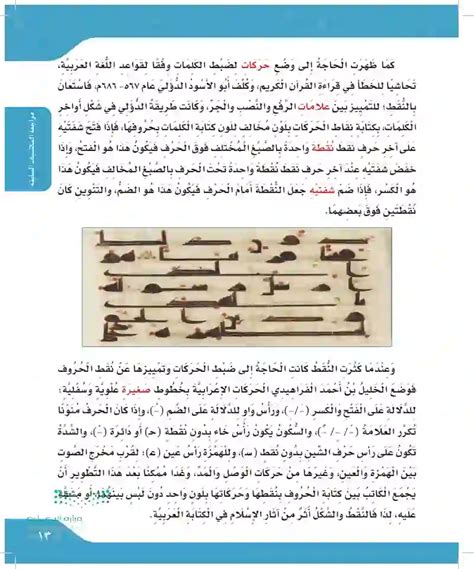 كَمَا ظَهَرَت الْحَاجَةُ إلى وَضْعِ حركات لِضَبْطِ الكَلِمات وِفْقًا لِقَواعِد اللُّغَة العَرَبِيَّة،
تَحَاشِيًا للخَطَأ في قِرَاءَة القُرآن الكَرِيم، وَكُلِّفَ أبو الأَسْوَد الدُّؤَلِي عام ٥٦٧- ٦٨٦م، فَاسْتَعَانَ
بالنُّقَط؛ للتمييز بَيْنَ علامات الرَّفْعِ والنَّصْب والجَرِّ، وَكَانَت طَرِيقَةُ الدُّؤَلي في شَكْلِ أواخر
الكلمات، بِكِتَابَةِ نِقاط الحَرَكَات بِلَوْنٍ مُخَالِف لِلَون كِتَابَةِ الكَلِمَات بِحُرُوفِها، فَإذَا فَتَحَ شَفَتَيْه
على آخِرِ حَرف نَقَطَ نُقْطَة واحدة بالصِّبْغ المُخْتَلِف فَوْقَ الحَرف فَيَكُون هَذَا هو الفَتح، وإذا
خَفَضَ شَفَتَيْه عندَ آخِر حرف نَقَطَ نُقْطَة واحدة تَحْتَ الحَرف بالصِّبغ المخالف فَيكُون هَذَا
هُوَ الكَسر، فَإذا ضَمّ شفتيه جَعَلَ النُّقْطَةَ أَمَامَ الحَرف فَيَكُون هَذَا هو الضَّم، والتنوين كَانَ
نُقْطَتَين فَوْقَ بَعْضِهِمَا.
وَعِنْدَمَا كَثُرَت النُّقَط كَانت الحَاجَةُ إلى ضَبْطِ الحَرَكَات وتَمْيِيزِهَا عَنْ نُقَط الحُرُوف
فَوَضَعَ الخَلِيلُ بْنُ أَحْمَد الفَراهيدي الحَرَكَات الإعْرَابِيَّة بِخُطُوط صغيرة عُلْوِيَّة وَسُفْلِيَّة؛
للدِّلالة عَلَى الفَتح والكَسر (-َ/-ِ)، ورأسُ وَاو للدِّلالة عَلَى الضَّم (-ُ)، وإذا كَانَ الحَرفُ مُنَوَّنًا
تُكَرَّر العَلامَةُ (-ً/-ٍ/-ٌ)، والسُّكُونُ يَكُون رَأْسُ خَاء بِدُون نُقْطَة (حـ) أو دَائِرة (-ْ)، والشَّدَّة
تَكُون عَلَى رَأس حَرف الشين بِدُون نقط (سـ)، وللهَمْزَة رأسُ عين (ء)؛ لقُرب مَخْرَجِ الصَّوت
بَيْنَ الهَمْزَة والعَين، وغَيْرها مِن حركات الوصل والمَدّ، وغَدَا مُمْكنًا بَعدَ هَذا التَّطْوِير أنْ
يَجْمَعَ الكَاتِبُ بَيْنَ كِتَابَة الحُروف بِنُقَطِها وَحَرَكَاتِها بِلَون واحد دُون لَبس بَيْنَهُمَا، أو مُتَّفَق
عَلَيه، لِذَا فَالنَّقْط والشَّكْل أَثَرٌ مِن آثار الإسلام في الكِتَابَة العَرَبِيَّة.
١٣